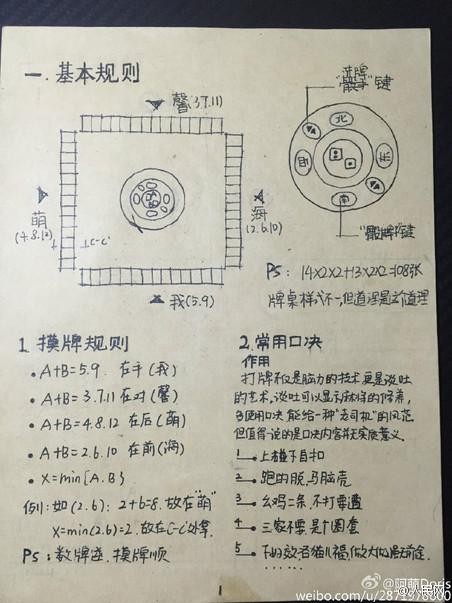 一.基本规则
馨(3.7.11)
萌
(4.8.12)
C-C'
海
(2.6.10)
我(5.9)
"键
北
东
南
西
"键
PS: 14×2×2+13×2×2=108张
牌桌样式不一,但道理是这个道理
1. 摸牌规则
• A+B=5.9 在手(我)
• A+B=3.7.11 在对(馨)
• A+B=4.8.12 在后(萌)
• A+B=2.6.10 在前(海)
• X=min{A.B}
例: 如(2.6): 2+6=8. 放在"萌"
X=min(2.6)=2. 放在C-C'处拿.
PS: 数牌逆. 摸牌顺
2. 常用口决
作用
打牌不仅是脑力的技术,更是谈吐
的艺术,谈吐可以显示麻林的修养,
多使用口决能给一种"老司机"的风范
但值得一说的是口决内容并无实质意义.
1 上碰不自扣
2 跑的脱,马脑壳
3 幺鸡二条,不打要遭
4 三家不要,是个圈套
5 下
......
1
@阿萌Doris
weibo.com/u/2874976800
人民网